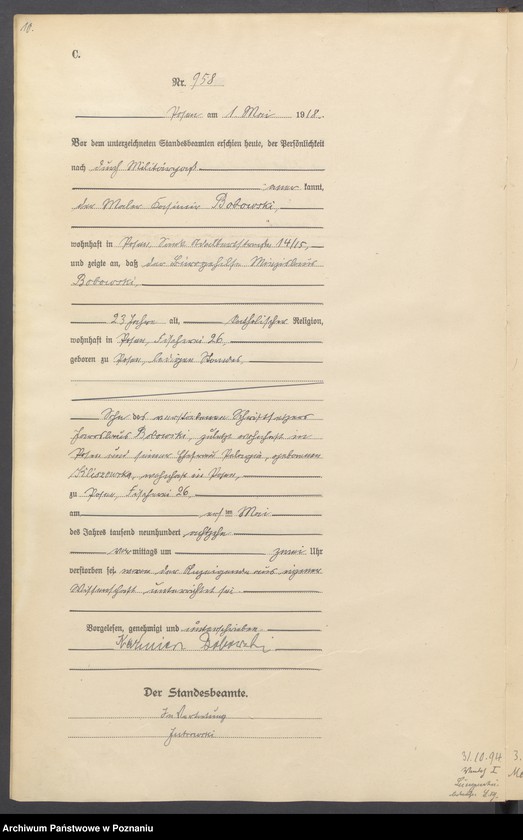 10.
C.
Nr. 958
Posen am 1 Mai 1918.
Vor dem unterzeichneten Standesbeamten erschien heute, der Persönlichkeit
nach durch Militärpaß
aner kannt,
der Maler Kasimir Bobowski,
wohnhaft in Posen, 14/15,
und zeigte an, daß der Bürogehilfe Miezislaus
Bobowski,
23 Jahre alt, katholischer Religion,
wohnhaft in Posen, Fischerei 26,
geboren zu Posen, ledigen Standes,
Sohn des verstorbenen Schriftsetzers
Jaroslaus Bobowski, zuletzt wohnhaft in
Posen und seiner Ehefrau Pelagia, geborenen
Kliszewska, wohnhaft in Posen,
zu Posen, Fischerei 26,
am ersten Mai
des Jahres tausend neunhundert achtzehn
vormittags um zwei Uhr
verstorben sei, wovon der Anzeigende aus eigener
Wissenschaft unterrichtet sei.
Vorgelesen, genehmigt und unterschrieben
Kazimierz Bobowski
Der Standesbeamte.
In Vertretung
31.10.94
3.
Archiwum Państwowe w Poznaniu